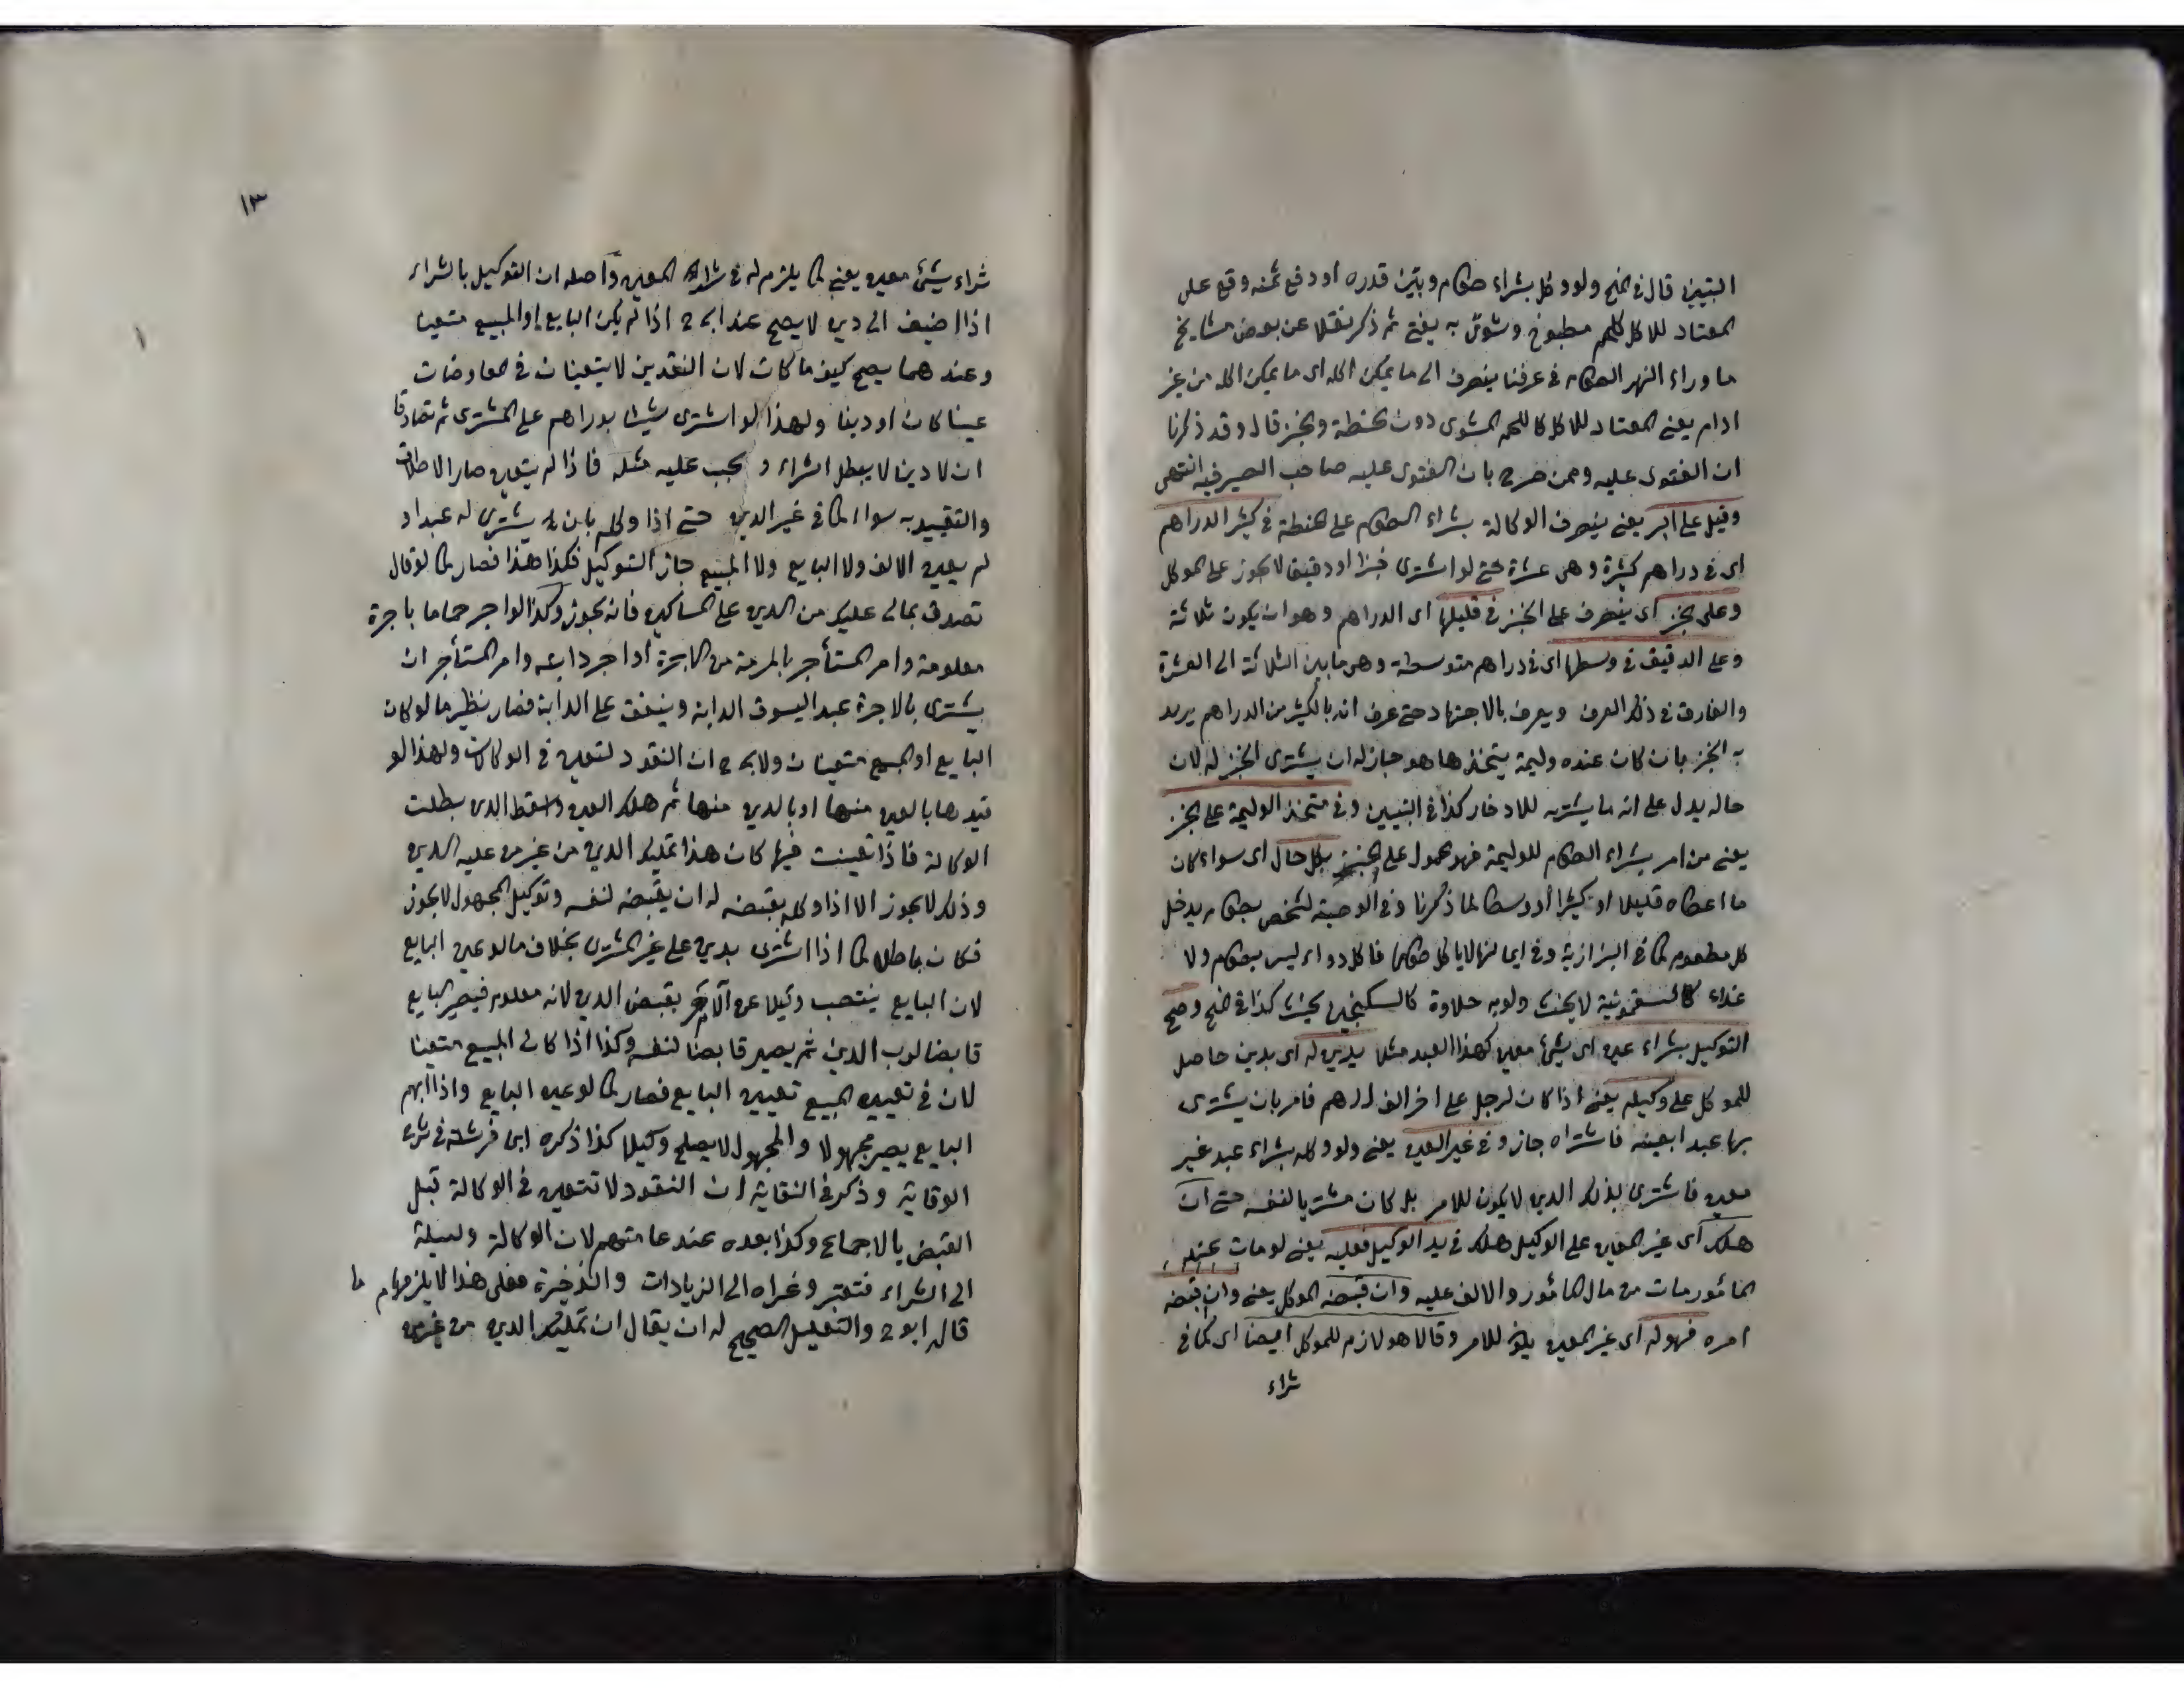 التبيين قال في المنح ولو وكل بشراء طعام وبين قدره او دفع ثمنه وقع على
المعتاد للاكل كلحم مطبوخ ومشوى به يفتى ثم ذكر نقلا عن بعض مشايخ
ما وراء النهر الطعام في عرفنا ينصرف الى ما يمكن اكله اى ما يمكن اكله من غير
ادام يعنى المعتاد للاكل كاللحم المشوى دون الحنطة والخبز قال وقد ذكرنا
ان الفتوى عليه وممن صرح بان الفتوى عليه صاحب الصيرفيه انتهى
وقيل على البر يعنى ينصرف الوكالة بشراء الطعام على الحنطة في كثير الدراهم
اى في دراهم كثيرة وهى عشرة حتى لو اشترى خبزا او دقيقا لا يجوز على الموكل
وعلى الخبز اى ينصرف على الخبز في قليلها اى الدراهم وهو ان يكون ثلاثة
وعلى الدقيق في وسطها اى في دراهم متوسطة وهى ما بين الثلاثة الى العشرة
والفارق في ذلك العرف ويعرف بالاجتهاد حتى عرف انه بالكثير من الدراهم يريد
به الخبز بان كان عنده وليمة يتخذها هو جاز له ان يشترى الخبز له لان
حاله يدل على انه ما يشتريه للادخار كذا في التبيين وفي متخذ الوليمة على الخبز
يعنى من امر بشراء الطعام للوليمة فهو محمول على الخبز بكل حال اى سواء كان
ما اعطاه قليلا او كثيرا او وسطا لما ذكرنا وفي الوصية لشخص بطعام يدخل
كل مطعوم كما في البزازية وفي ايمانها لا ياكل طعاما فاكل دواء ليس بطعام ولا
غذاء كالسقمونية لا يحنث ولو به حلاوة كالسكنجبين يحنث كذا في المنح وصح
التوكيل بشراء عين اى بشئ معين كهذا العبد مثلا بدين له اى بدين حاصل
للموكل على وكيله يعنى اذا كان لرجل على اخر الف درهم فامر بان يشترى
بها عبدا بعينه فاشتراه جاز وفي غير العين يعنى ولو وكله بشراء عبد غير
معين فاشترى بذلك الدين لا يكون للامر بل كان مشتريا لنفسه حتى ان
هلك اى غير المعين على الوكيل هلك في يد الوكيل فعليه يعنى لو مات عند
المأمور مات من مال المأمور والالف عليه وان قبضه الموكل يعنى وان قبضه
امره فهو له اى غير المعين للامر وقالا هو لازم للموكل ايضا اى كما في
شراء
١٣
شراء شيئ معين يعنى كما يلزم له في شراء المعين واصله ان التوكيل بالشراء
اذا اضيف الى دين لا يصح عند ابى ح اذا لم يكن البايع او المبيع متعينا
وعندهما يصح كيف ما كان لان النقدين لا يتعينان في المعاوضات
عينا كان او دينا ولهذا لو اشترى شيئا بدراهم على المشترى ثم تصادقا
ان لا دين لا يبطل الشراء ويجب عليه مثله فاذا لم يتعين صار الاطلاق
والتقييد به سواء كما في غير الدين حتى اذا وكله بان يشترى له عبدا و
لم يعين الالف ولا البايع ولا المبيع جاز التوكيل فكذا هذا فصار كما لو قال
تصدق بمالى عليك من الدين على المساكين فانه يجوز وكذا لو اجر حماما باجرة
معلومة وامر المستأجر بالمرمة من الاجرة او اجر دابته وامر المستأجر ان
يشترى بالاجرة عبدا ليسوق الدابة وينفق على الدابة فصار نظير ما لو كان
البايع او المبيع متعينان ولابى ح ان النقود تتعين في الوكالات ولهذا لو
قيدها بالعين منها او بالدين منها ثم هلك العين واسقط الدين بطلت
الوكالة فاذا تعينت فيها كان هذا تمليك الدين من غير من عليه الدين
وذلك لا يجوز الا اذا وكله بقبضه له ان يقبضه لنفسه وتوكيل المجهول لا يجوز
فكان باطلا كما اذا اشترى بدين على غير المشترى بخلاف ما لو عين البايع
لان البايع ينتصب وكيلا عن الآمر بقبض الدين لانه معلوم فيصير البايع
قابضا لرب الدين ثم يصير قابضا لنفسه وكذا اذا كان المبيع متعينا
لان في تعيين المبيع تعيين البايع فصار كما لو عين البايع واذا ابهم
البايع يصير مجهولا والمجهول لا يصلح وكيلا كذا ذكره ابن فرشته في شرح
الوقاية وذكر في النقاية ان النقود لا تتعين في الوكالة قبل
القبض بالاجماع وكذا بعده عند عامتهم لان الوكالة وسيلة
الى الشراء فتعتبر وعزاه الى الزيادات والذخيرة فعلى هذا لا يلزمهما ما
قاله ابو ح والتعليل الصحيح له ان يقال ان تمليك الدين من غير من